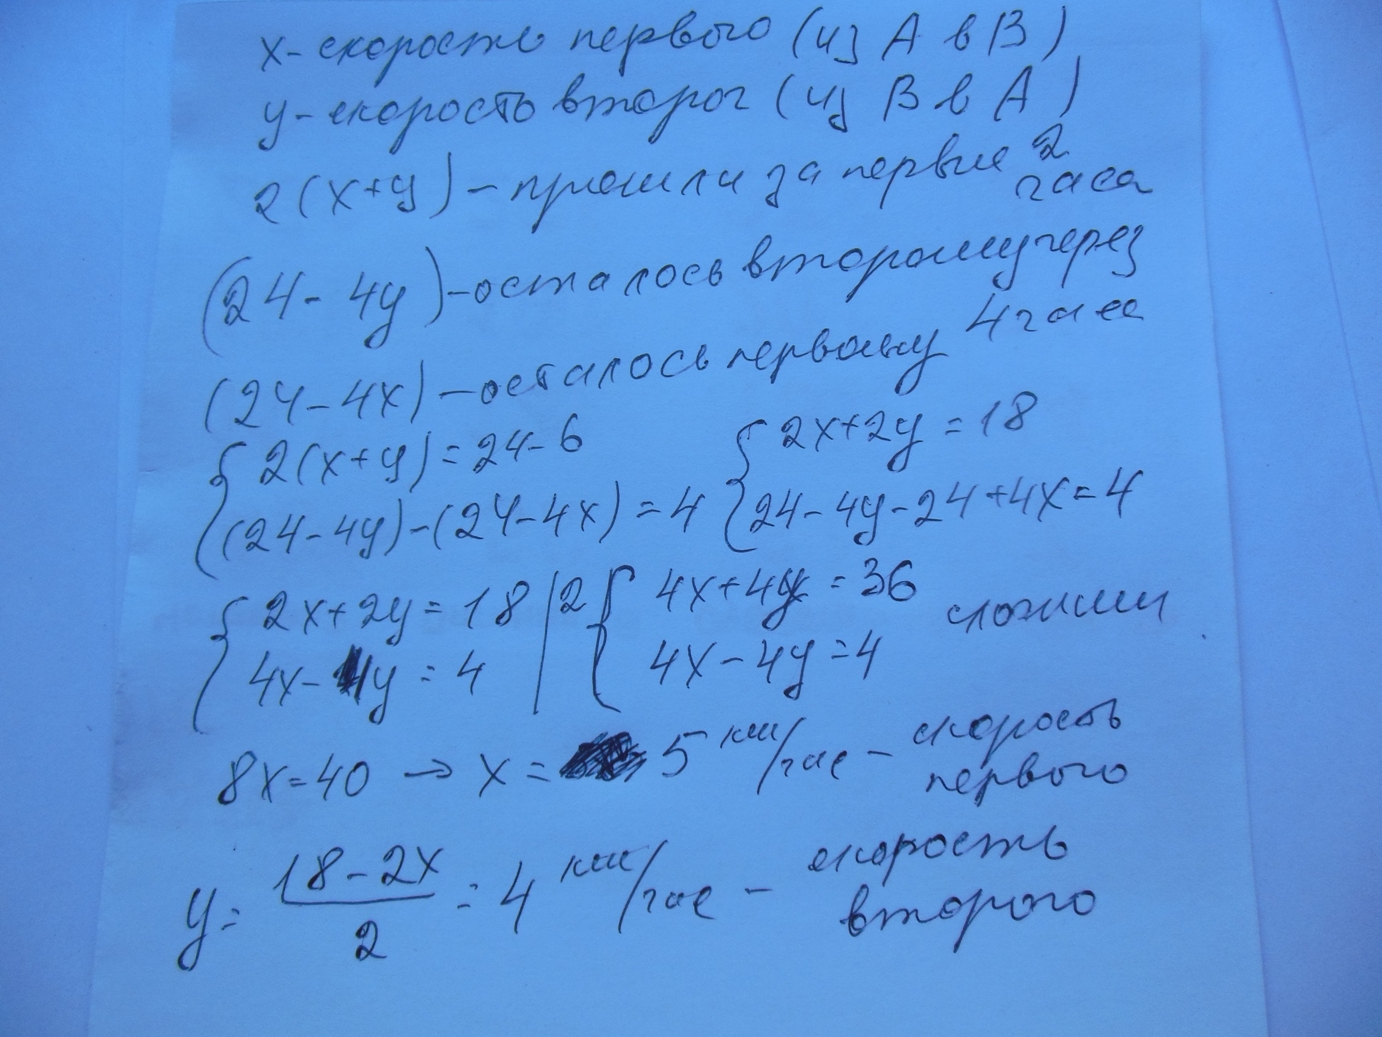 x - скорость первого (из А в В)
у - скорость второг (из В в А)
2(x+y) - прошли за первые 2 часа
(24 - 4y) - осталось второму через 4 часа
(24 - 4x) - осталось первому
{ 2(x+y) = 24 - 6
(24 - 4y) - (24 - 4x) = 4
{ 2x + 2y = 18
24 - 4y - 24 + 4x = 4
{ 2x + 2y = 18 | 2
4x - 4y = 4
{ 4x + 4y = 36
4x - 4y = 4
сложим
8x = 40 → x = 5 км/час - скорость первого
y = (18 - 2x)/2 = 4 км/час - скорость второго